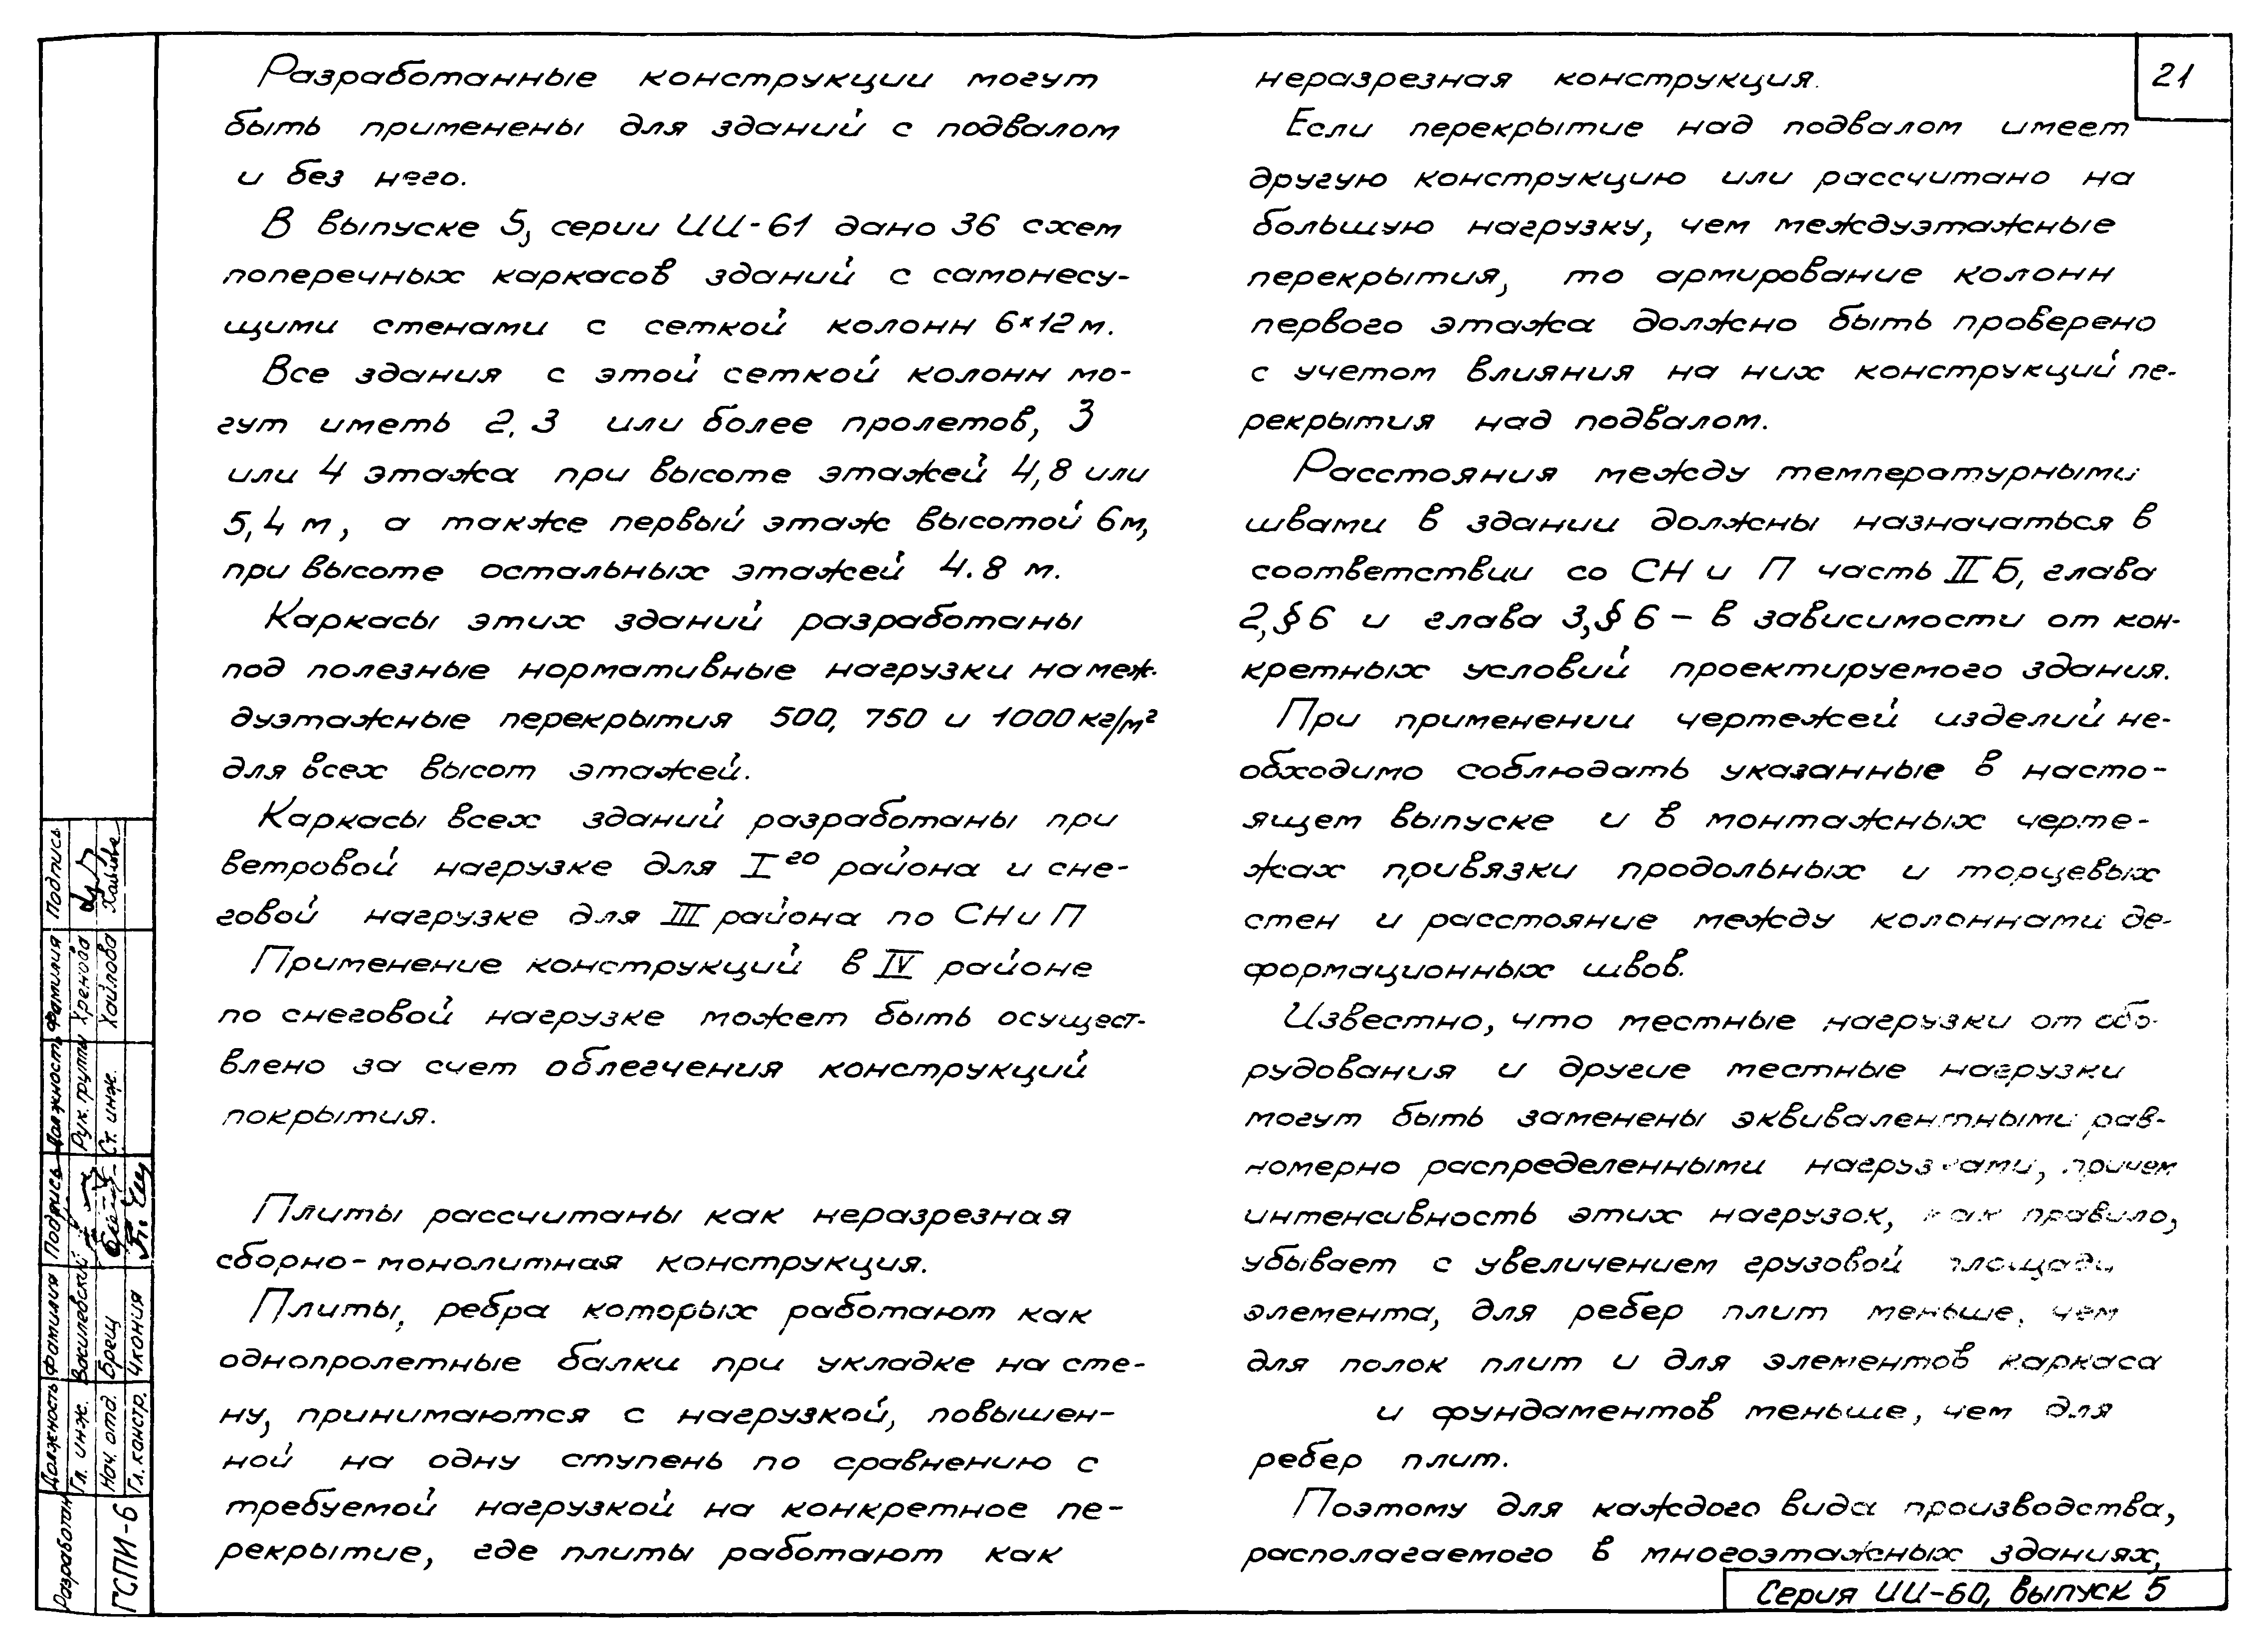 Разработанные конструкции могут
быть применены для зданий с подвалом
и без него.
В выпуске 5, серии ИИ-61 дано 36 схем
поперечных каркасов зданий с самонесу-
щими стенами с сеткой колонн 6×12м.
Все здания с этой сеткой колонн мо-
гут иметь 2,3 или более пролетов, 3
или 4 этажа при высоте этажей 4,8 или
5,4 м, а также первый этаж высотой 6м,
при высоте остальных этажей 4.8 м.
Каркасы этих зданий разработаны
под полезные нормативные нагрузки на меж-
дуэтажные перекрытия 500, 750 и 1000 кг/м²
для всех высот этажей.
Каркасы всех зданий разработаны при
ветровой нагрузке для I го района и сне-
говой нагрузке для III района по СН и П
Применение конструкций в IV районе
по снеговой нагрузке может быть осущест-
влено за счет облегчения конструкций
покрытия.
Плиты рассчитаны как неразрезная
сборно-монолитная конструкция.
Плиты, ребра которых работают как
однопролетные балки при укладке на сте-
ну, принимаются с нагрузкой, повышен-
ной на одну ступень по сравнению с
требуемой нагрузкой на конкретное пе-
рекрытие, где плиты работают как
неразрезная конструкция.
Если перекрытие над подвалом имеет
другую конструкцию или рассчитано на
большую нагрузку, чем междуэтажные
перекрытия, то армирование колонн
первого этажа должно быть проверено
с учетом влияния на них конструкций пе-
рекрытия над подвалом.
Расстояния между температурными
швами в здании должны назначаться в
соответствии со СН и П часть II Б, глава
2, § 6 и глава 3, § 6 – в зависимости от кон-
кретных условий проектируемого здания.
При применении чертежей изделий не-
обходимо соблюдать указанные в насто-
ящем выпуске и в монтажных черте-
жах привязки продольных и торцевых
стен и расстояние между колоннами де-
формационных швов.
Известно, что местные нагрузки от обо-
рудования и другие местные нагрузки
могут быть заменены эквивалентными рав-
номерно распределенными нагрузками, причем
интенсивность этих нагрузок, как правило,
убывает с увеличением грузовой площади
элемента, для ребер плит меньше, чем
для полок плит и для элементов каркаса
и фундаментов меньше, чем для
ребер плит.
Поэтому для каждого вида производства,
располагаемого в многоэтажных зданиях,
21
Серия ИИ-60, выпуск 5
Разработан ГСПИ-6
Должность Фамилия Подпись Должность Фамилия Подпись
Гл. инж. Василевский Рук. группы Хренова
Нач. отд. Брещ Ст. инж. Хайлова
Гл. констр. Чкония